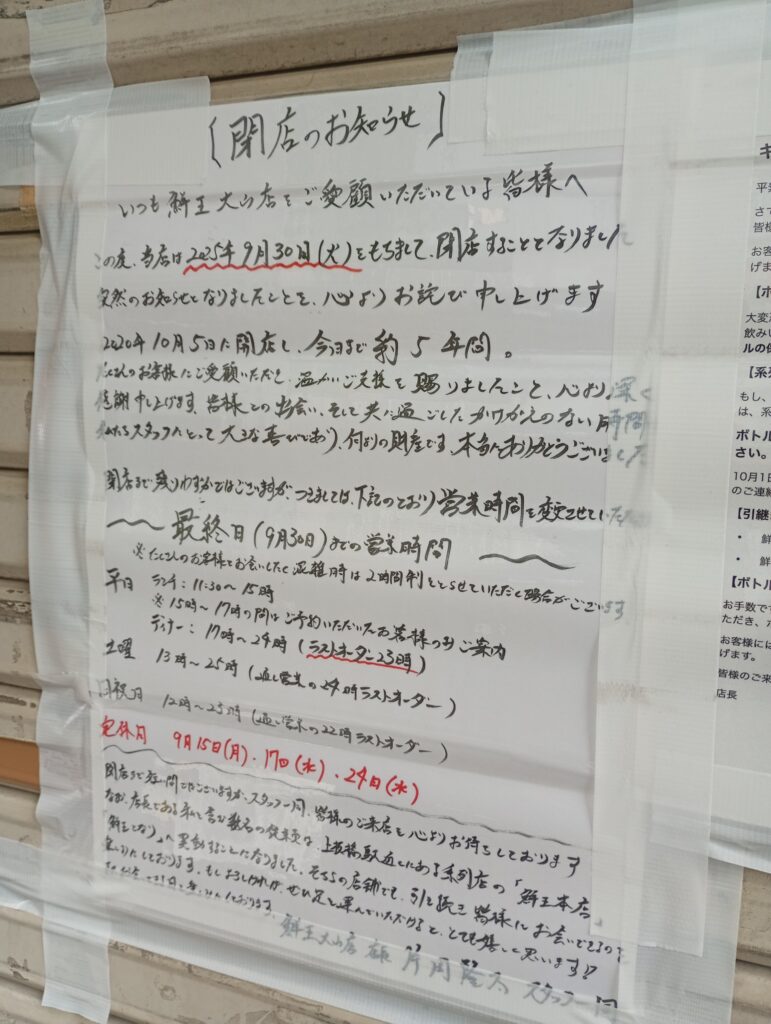 〔閉店のお知らせ〕
いつも鮮王大山店をご愛顧いただいている皆様へ
この度、当店は2025年9月30日(火)をもちまして、閉店することとなりました
突然のお知らせとなりましたことを、心よりお詫び申し上げます
2020年10月5日に開店し、今日まで約5年間。
たくさんのお客様にご愛顧いただき、温かいご支援を賜りましたこと、心より深く
感謝申し上げます。皆様との出会い、そして共に過ごしたかけがえのない時間
私たちスタッフにとって大きな喜びであり、何よりの財産です。本当にありがとうございました
閉店まで残りわずかではございますが、つきましては、下記のとおり営業時間を変更させていただ
最終日(9月30日)までの営業時間
※たくさんのお客様とお会いしたく混雑時は2時間制とさせていただく場合がございます
平日 ランチ：11:30～15時
※15時～17時の間はご予約いただいたお客様のみご案内
ディナー：17時～24時(ラストオーダー23時)
土曜 13時～25時(通し営業の24時ラストオーダー)
日祝日 12時～25時(通し営業の22時ラストオーダー)
定休日 9月15日(月)、17日(水)、24日(水)
閉店まで短い間ではございますが、スタッフ一同、皆様のご来店を心よりお待ちしております
なお、店長である私を含む数名の従業員は、上板橋駅近くにある系列店の「鮮王本店」
「鮮王となり」へ異動することになりました。そちらの店舗でも、引き続き皆様にお会いできるのを
楽しみにしております。もしよろしければ、ぜひ足を運んでいただけると、とても嬉しく思います!!
しております。
鮮王大山店 店長 片岡 スタッフ一同
キ
平素
さて
皆様
お客
げます
【ボ
大変
飲み
ルの保
【系列
もし、
は、系
ボトル
さい。
10月1日
のご連絡
【引継
・ 鮮
・ 鮮
【ボトル
お手数です
ただき、ボ
お客様には
げます。
皆様のご来
店長